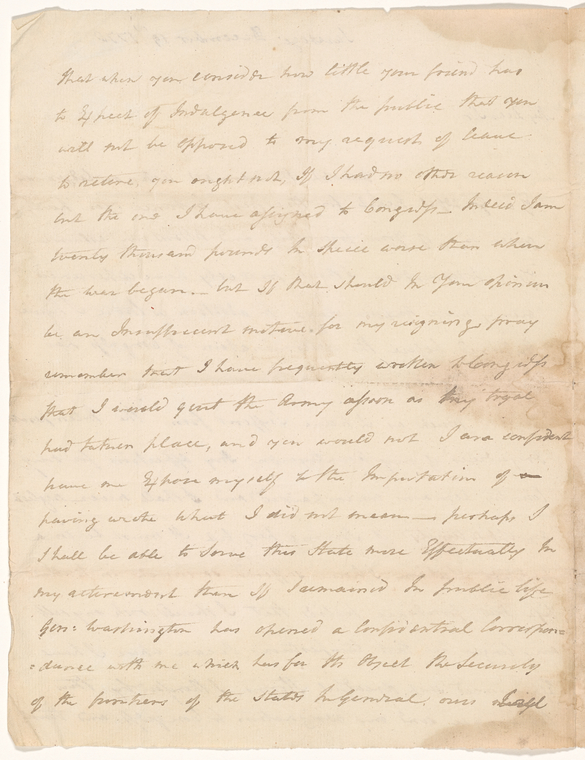 that when you consider how little your friend has
to Expect of Indulgence from the public that you
will not be opposed to my request of leave
to retire, you ought not, If I had no other reason
but the one I have assigned to Congress. Indeed I am
twenty thousand pounds In Specie worse than when
the war began. but If that should In Your opinion
be an Insufficient motive for my resigning, pray
remember that I have frequently written to Congress
that I would quit the Army as soon as my tryal
had taken place, and you would not I am confident
have me Expose myself to the Imputation of
having wrote what I did not mean — perhaps I
shall be able to serve this State more Effectually In
my retirement than If I remained In public life
Gen: Washington has opened a Confidential Correspon=
=dance with me which has for Its Object the Security
of the frontiers of the States In General, ours